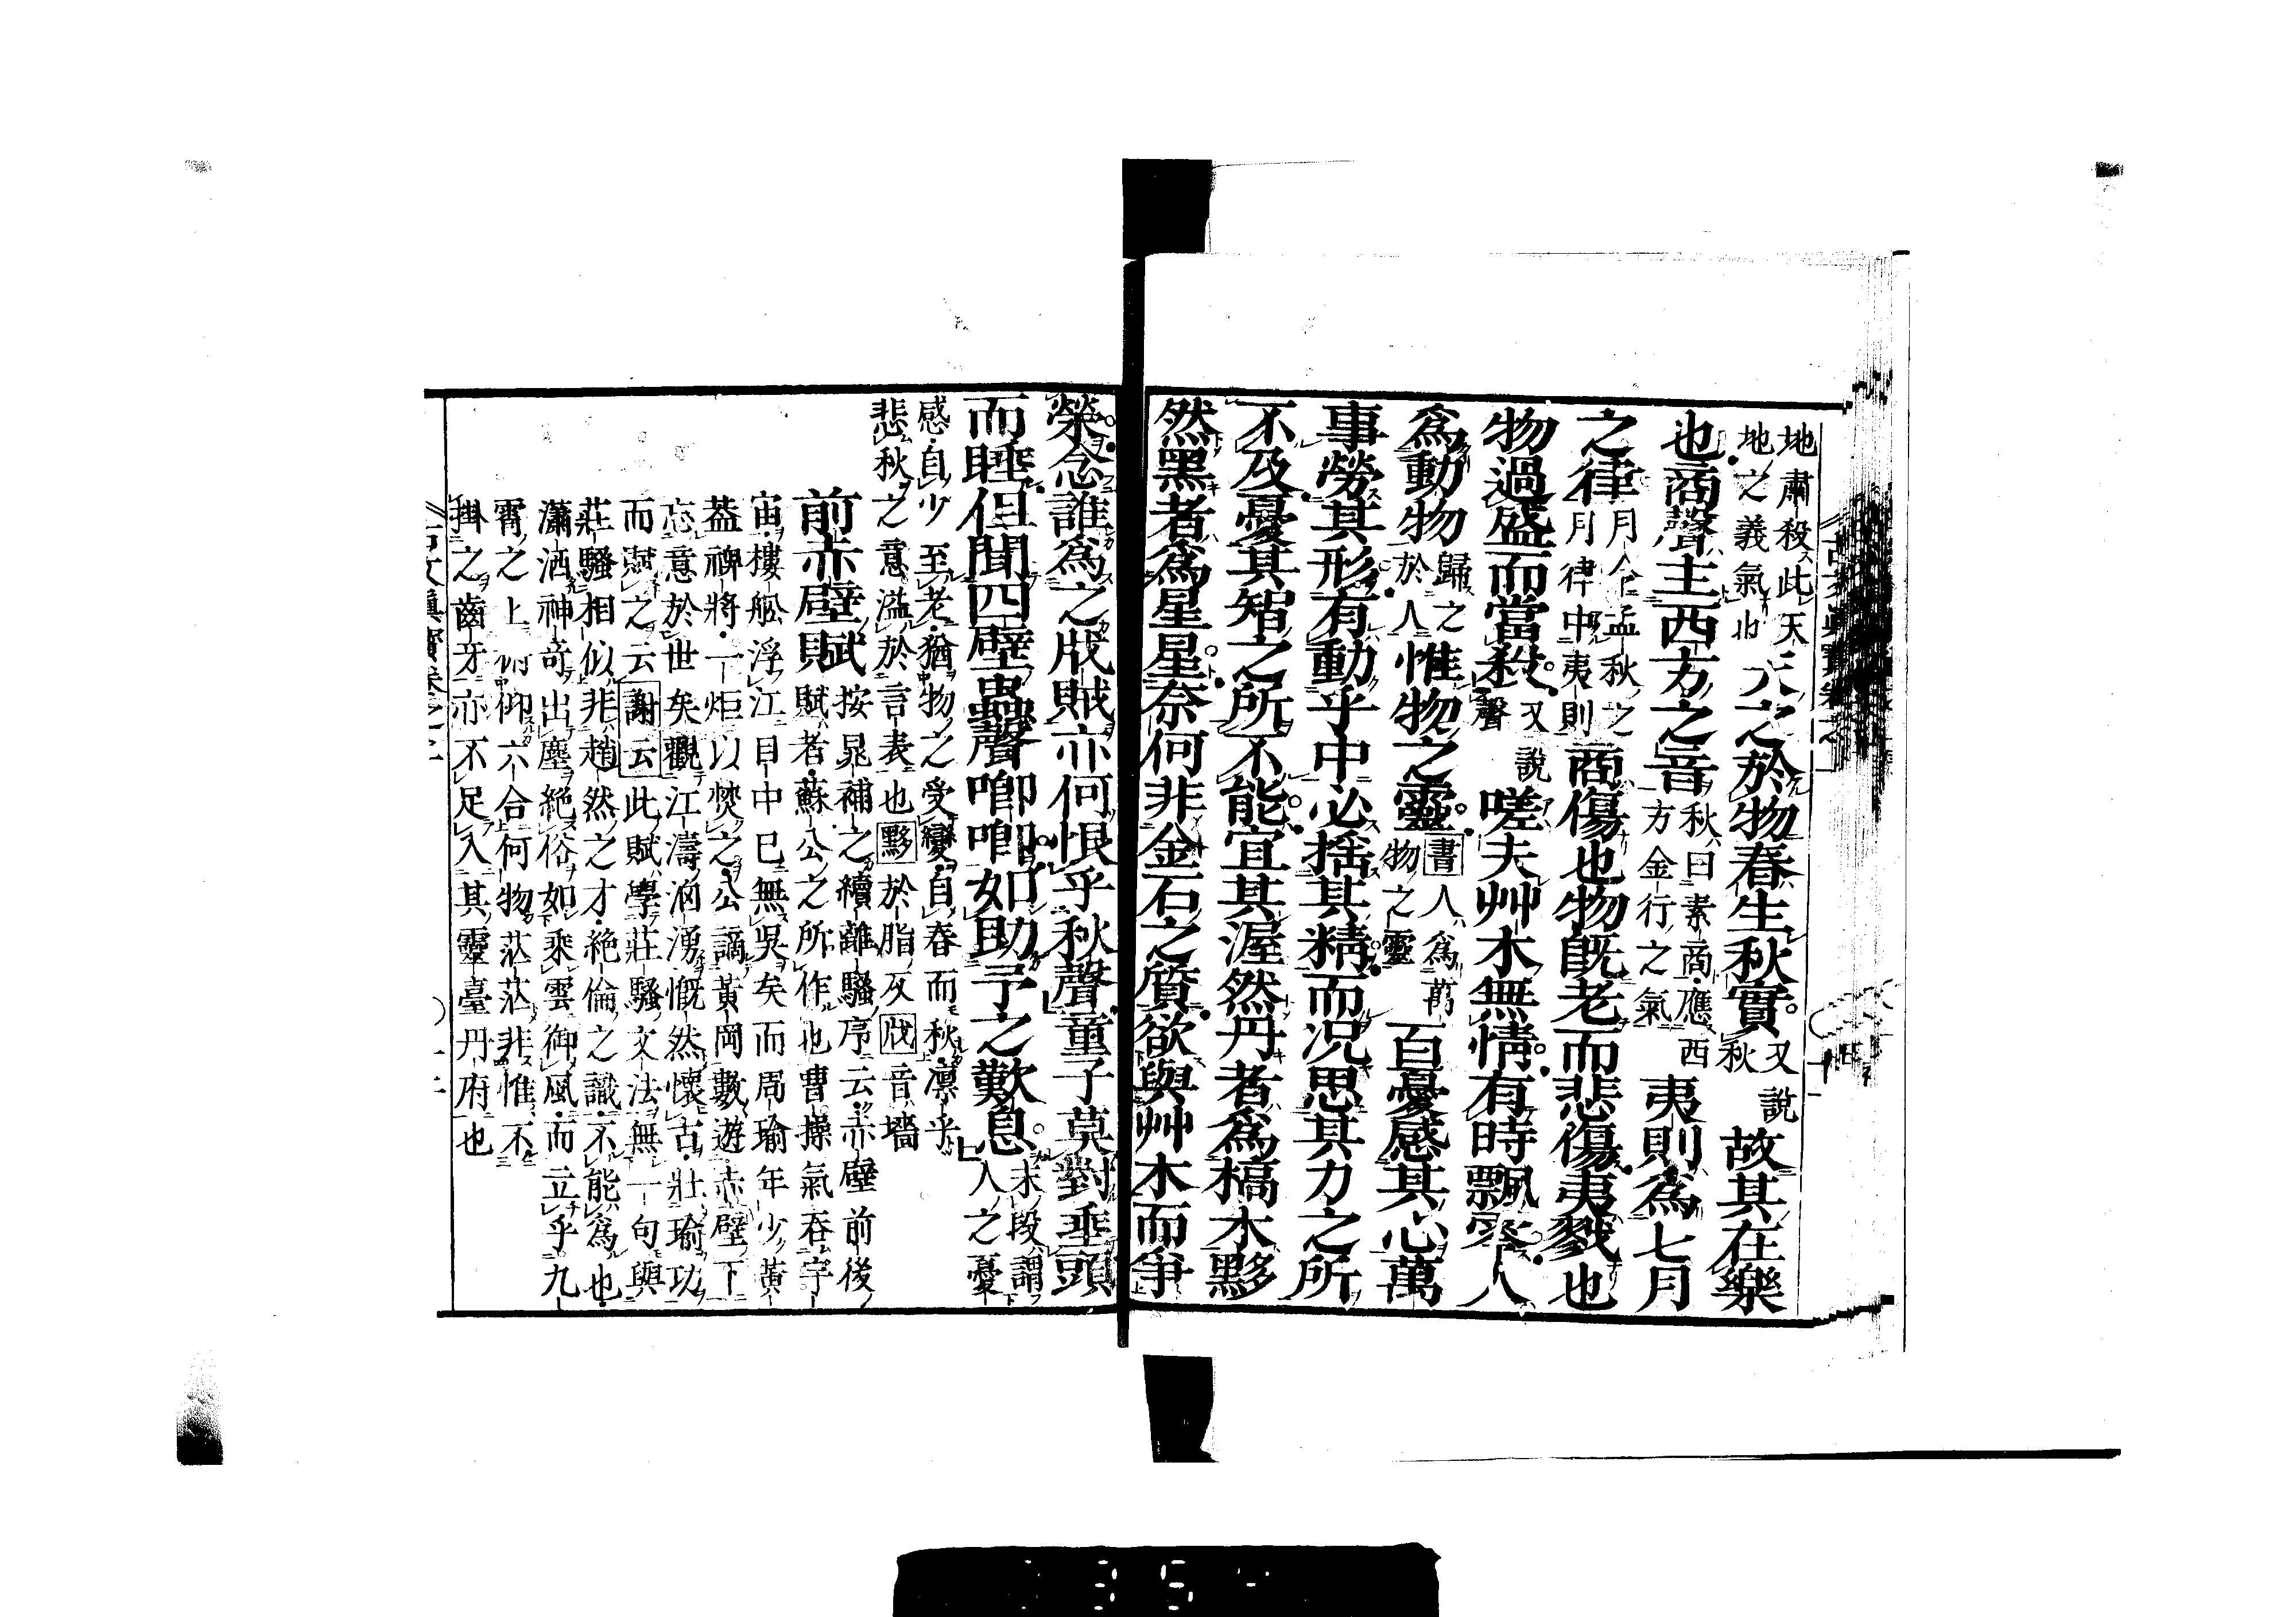 地肅殺此天
地之義氣也
天之於物春生秋實
又說
秋
故其在樂
也商聲主西方之音
秋曰素商應西
方金行之氣
夷則爲七月
之律
月令孟秋之
月律中夷則
商傷也物旣老而悲傷夷戮也
物過盛而當殺
又說
聲
嗟夫艸木無情有時飄零人
爲動物
歸之
於人
惟物之靈
書人爲萬
物之靈
百憂感其心萬
事勞其形有動乎中必搖其精而况思其力之所
不及憂其智之所不能宜其渥然丹者爲槁木黟
然黑者爲星星奈何非金石之質欲與艸木而爭
榮念誰爲之戕賊亦何恨乎秋聲童子莫對垂頭
而睡但聞四壁蟲聲喞喞如助予之歎息
末段謂
人之憂
感自少至老猶物之受變自春而秋凛乎
悲秋之意溢於言表也黟於脂反戕音墻
前赤壁賦
按晁補之續離騷序云赤壁前後
賦者蘇公之所作也曹操氣吞宇
宙樓舩浮江目中已無吳矣而周瑜年少黃
蓋裨將一炬以焚之公謫黃岡數遊赤壁下
忘意於世矣觀江濤洶湧慨然懷古壯瑜功
而賦之云謝云此賦學莊騷文法無一句與
莊騷相似非趙然之才絶倫之識不能爲也
瀟洒神奇出塵絶俗如乘雲御風而立乎九
霄之上俯仰六合何物茫茫非惟不
掛之齒牙亦不足入其靈臺丹府也